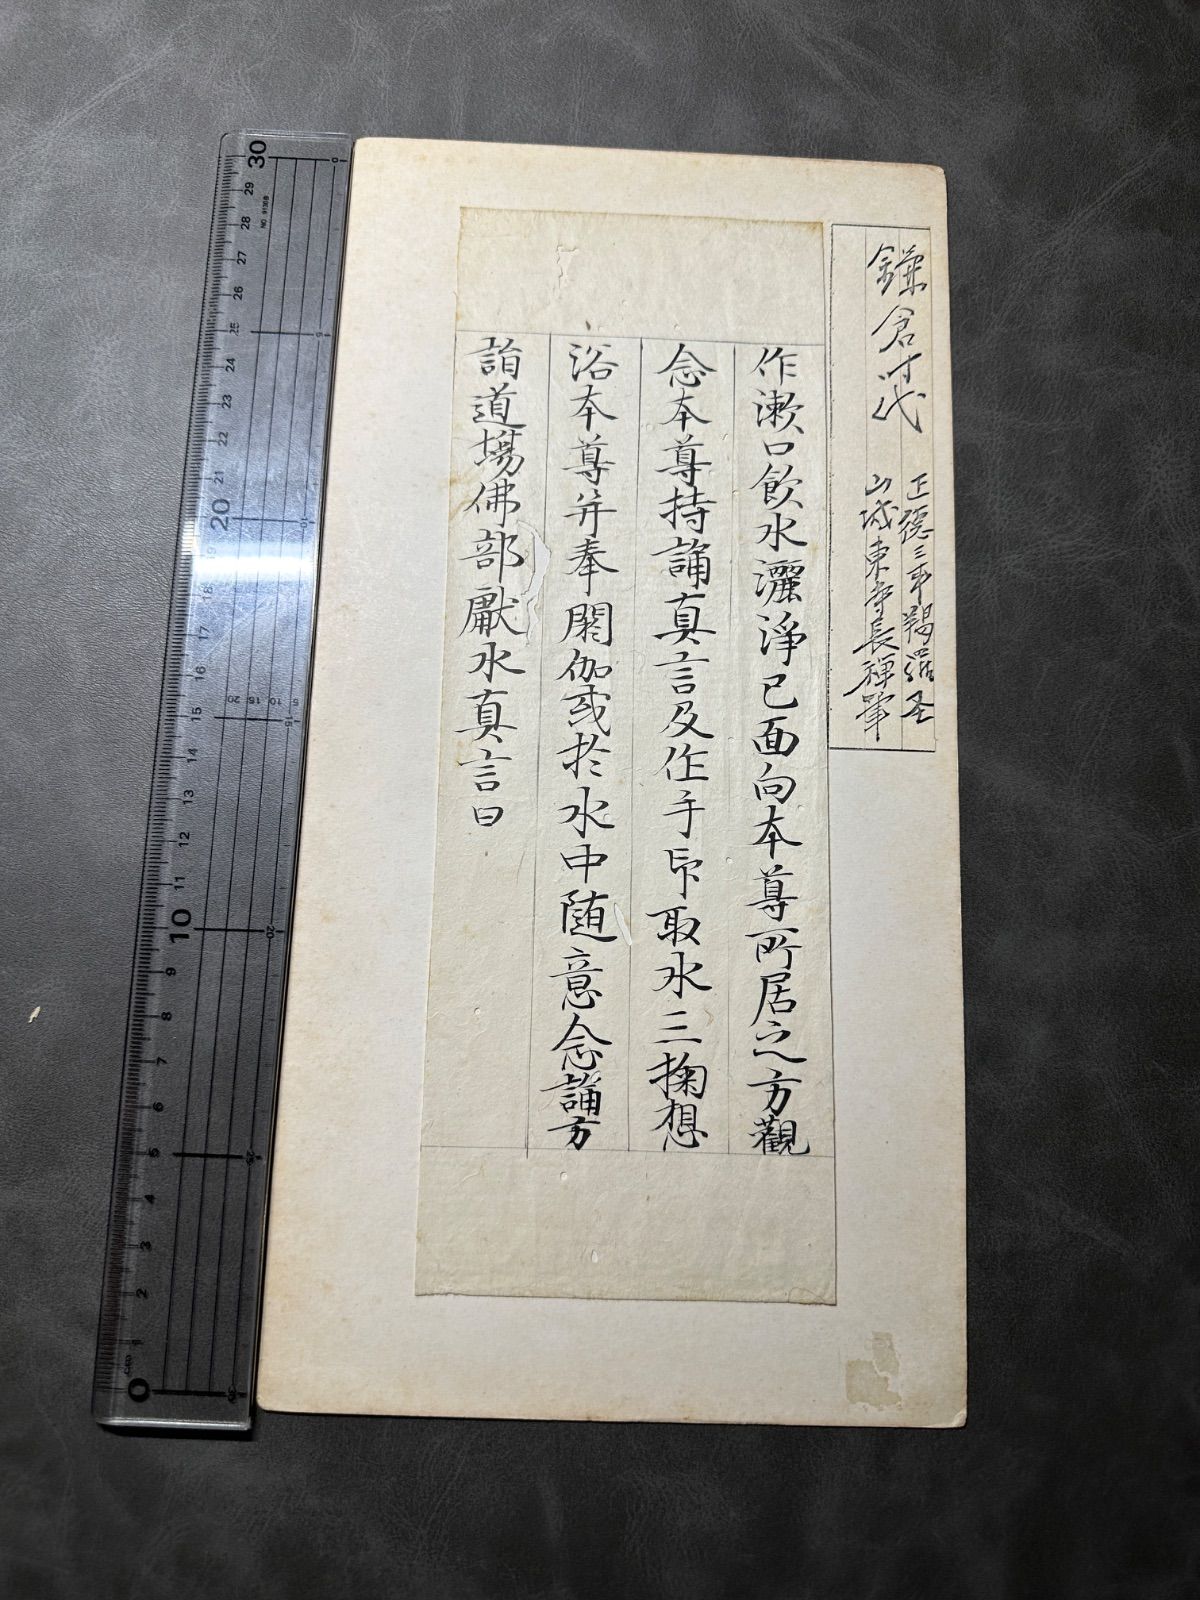 鎌倉時代
正徳三年羯羅圣
山城東寺長禅筆
作漱口飲水灑淨已面向本尊所居之方觀
念本尊持誦真言及作手印取水三掬想
浴本尊并奉閼伽或於水中随意念誦方
詣道場佛部獻水真言曰
30
29
28
27
26
25
24
23
22
21
20
19
18
17
16
15
14
13
12
11
10
9
8
7
6
5
4
3
2
1
0